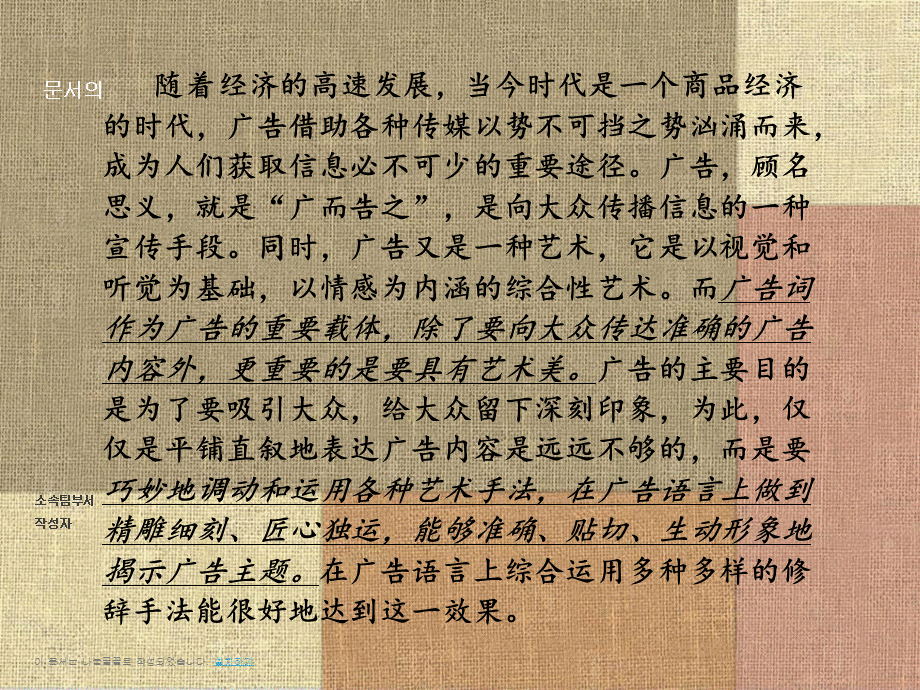 문서의
随着经济的高速发展，当今时代是一个商品经济
的时代，广告借助各种传媒以势不可挡之势汹涌而来，
成为人们获取信息必不可少的重要途径。广告，顾名
思义，就是“广而告之”，是向大众传播信息的一种
宣传手段。同时，广告又是一种艺术，它是以视觉和
听觉为基础，以情感为内涵的综合性艺术。而广告词
作为广告的重要载体，除了要向大众传达准确的广告
内容外，更重要的是要具有艺术美。广告的主要目的
是为了要吸引大众，给大众留下深刻印象，为此，仅
仅是平铺直叙地表达广告内容是远远不够的，而是要
巧妙地调动和运用各种艺术手法，在广告语言上做到
精雕细刻、匠心独运，能够准确、贴切、生动形象地
揭示广告主题。在广告语言上综合运用多种多样的修
辞手法能很好地达到这一效果。
소속팀부서
작성자
이 문서는 나눔글꼴로 작성되었습니다.